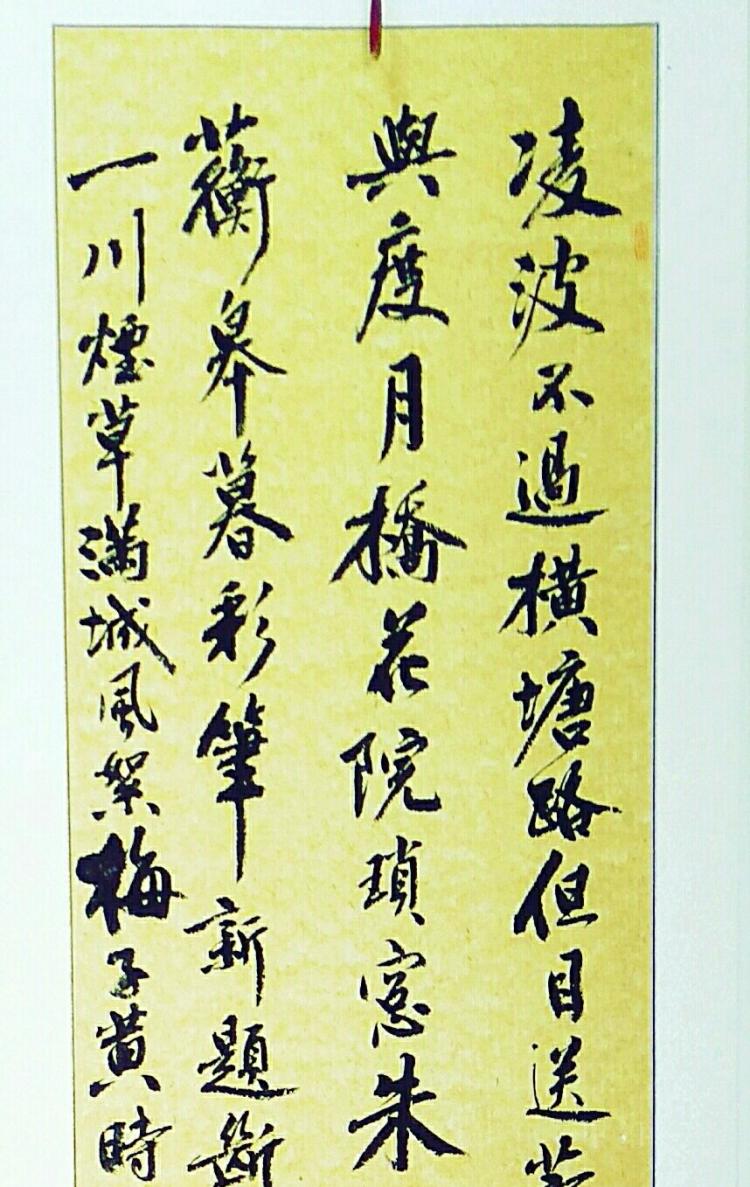 凌波不過橫塘路但目送
與度月橋花院瑣窓朱
蘅皋暮彩筆新題斷
一川煙草滿城風絮梅子黃時